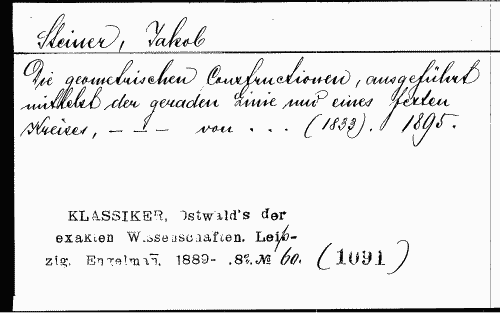 Steiner, Jakob
Die geometrischen Constructionen, ausgeführt
mittelst der geraden Linie und eines festen
Kreises, — — — von . . . (1833). 1895.
KLASSIKER, Ostwald's der
exakten Wissenschaften. Leip-
zig. Engelmann, 1889- .8°. № 60. (1091)